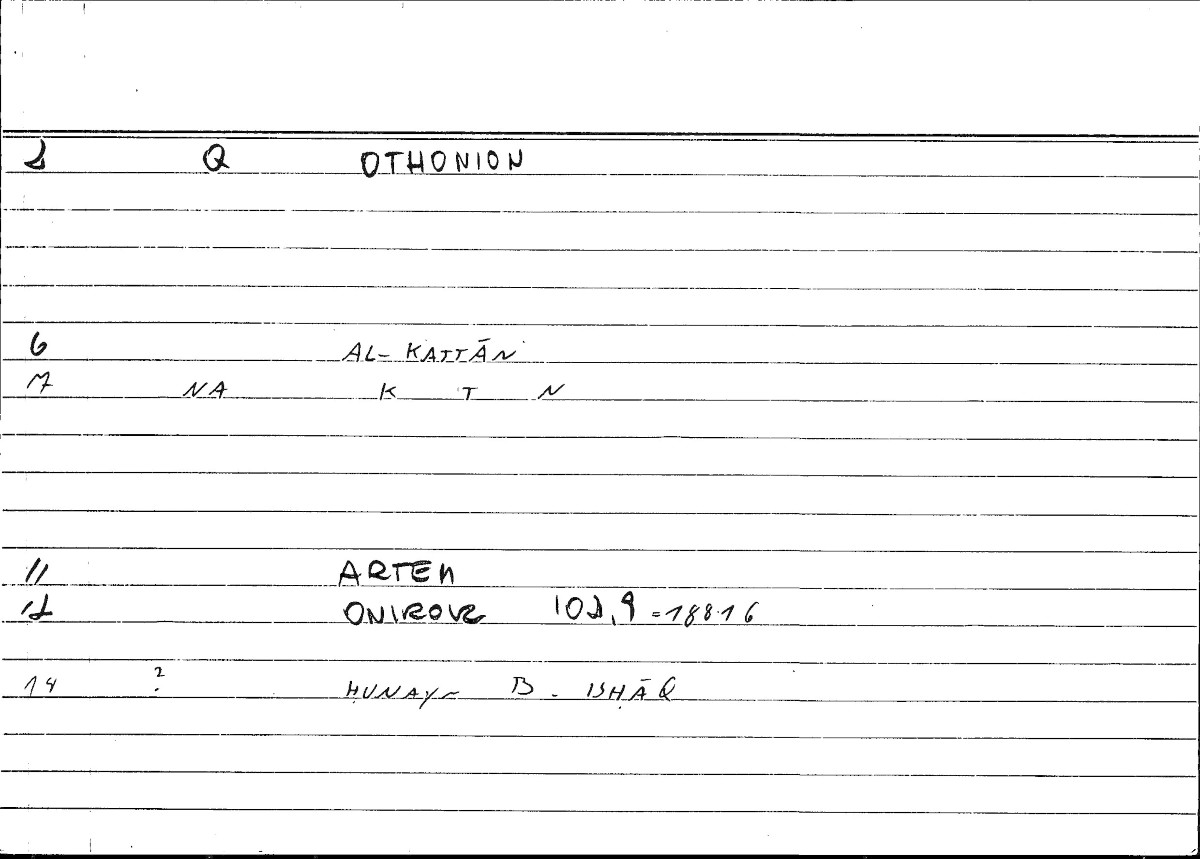 2 Q OTHONION
6 AL-KATTĀN
7 NA K T N
11 ARTEM
12 ONIROCR 102,9 = 188.16
14 ? ḤUNAYN B. ISḤĀQ